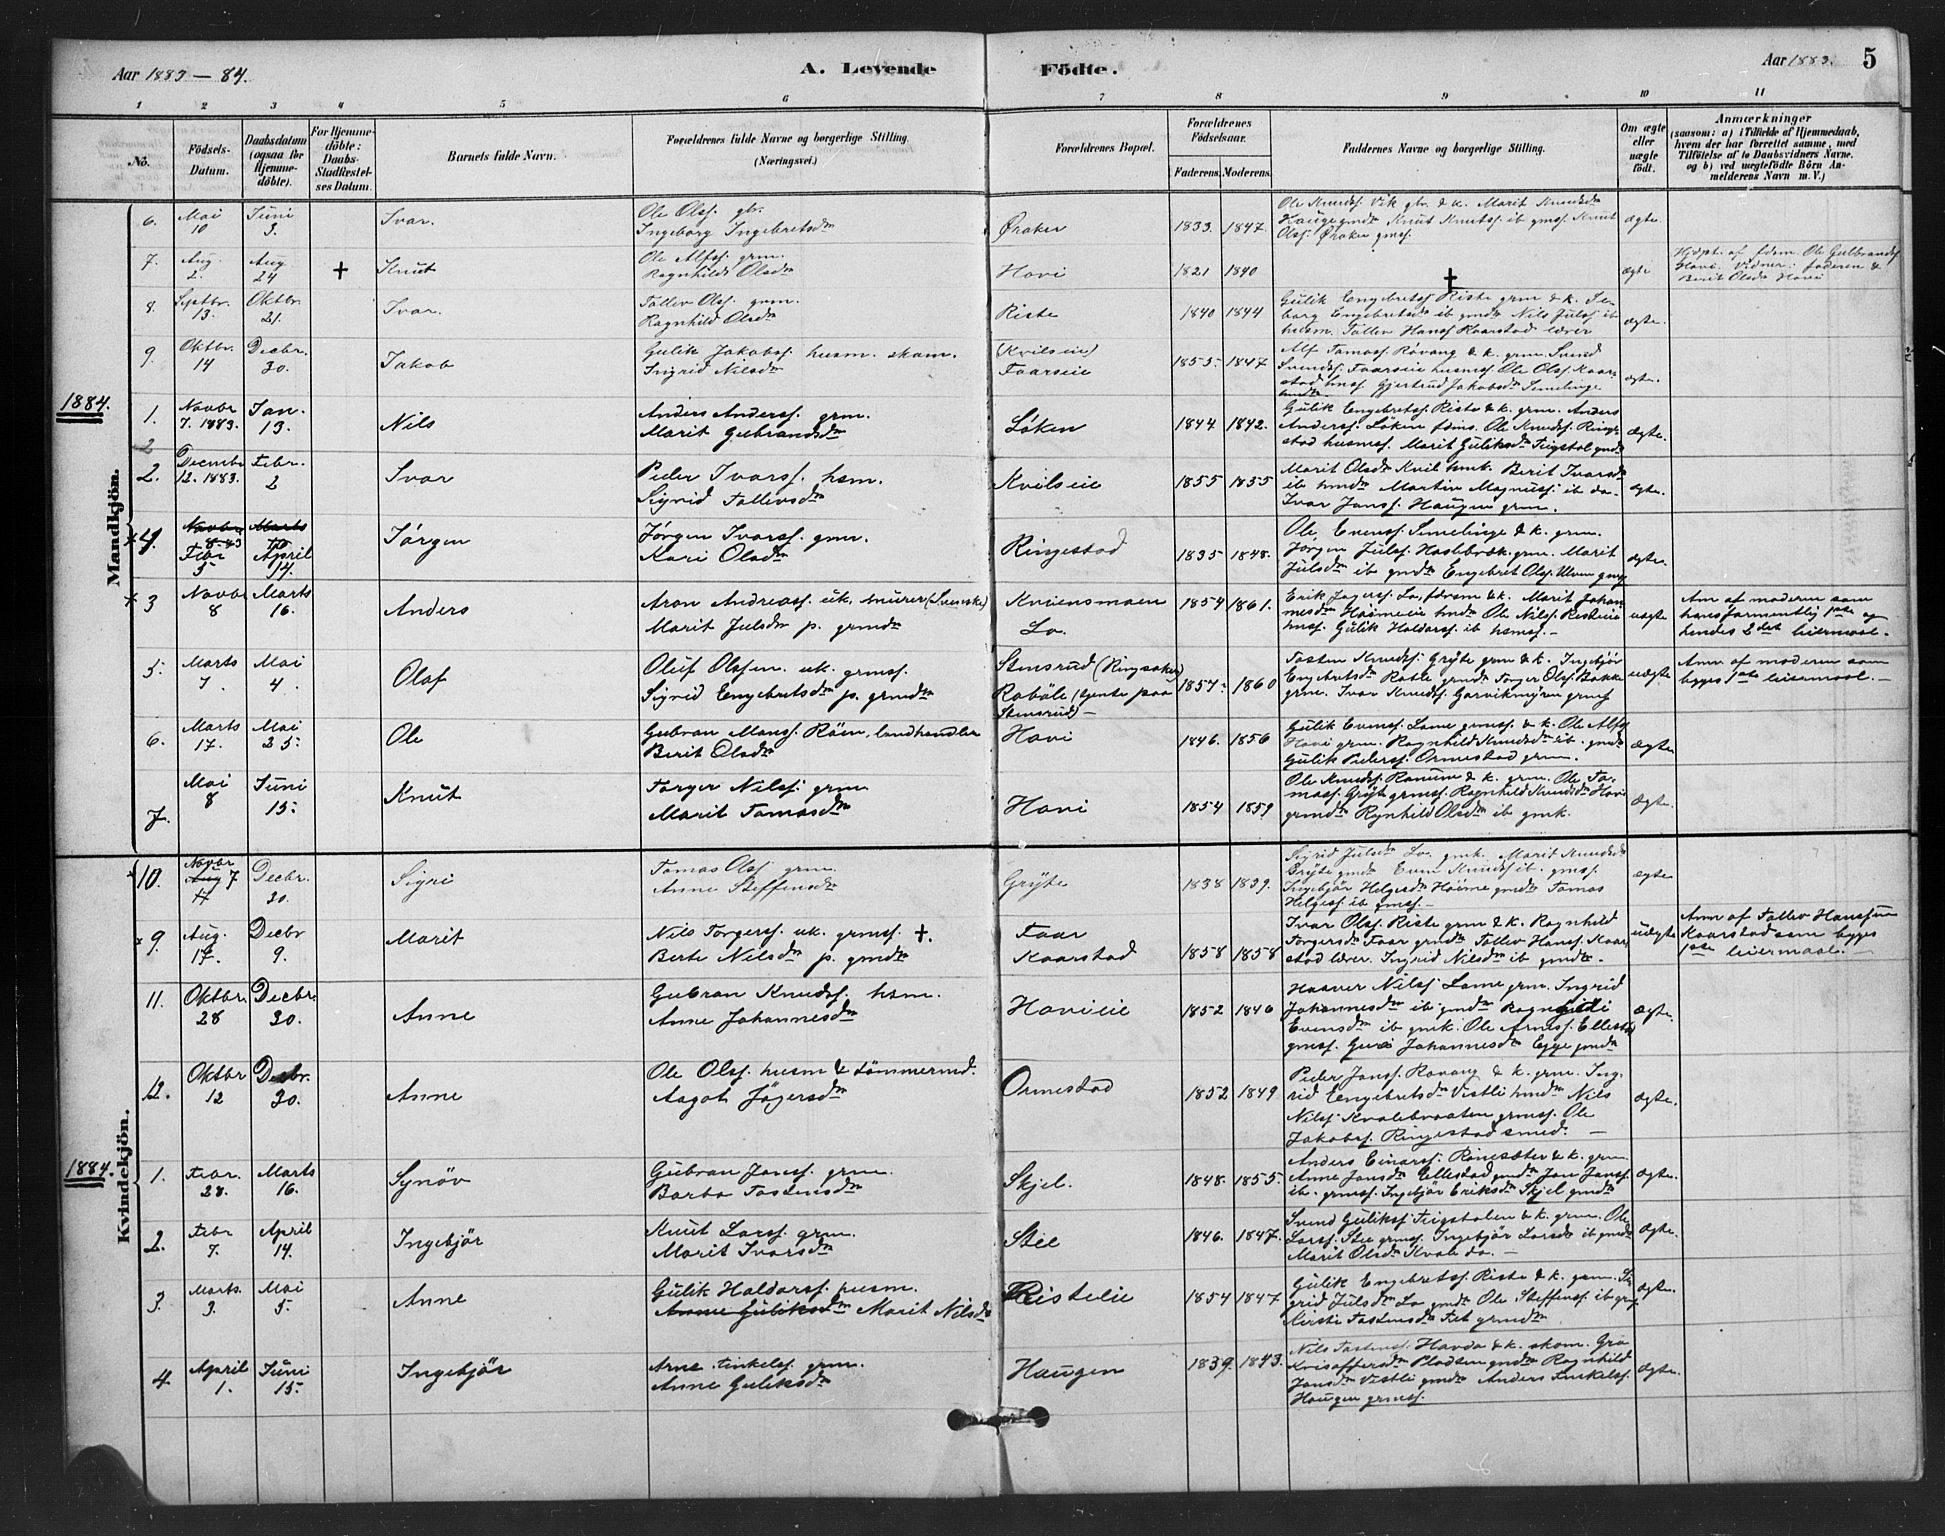 Aar 1883 — 84.
A. Levende
Födte.
Aar 1883.
5
1 2 3 4 5 6 7 8 9 10 11
No.
Födsels-
Datum.
Daabsdatum
(ogsaa for
Hjemme-
döbte).
For Hjemme-
döbte:
Daabs-
Stadfæstel-
ses Datum.
Barnets fulde Navn.
Forældrenes fulde Navne og borgerlige Stilling.
(Næringsvei.)
Forældrenes Bopæl.
Forældrenes
Födselsaar.
Faderens. Moderens.
Faddernes Navne og borgerlige Stilling.
Om ægte
eller
uægte
födt.
Anmærkninger
(saasom: a) i Tilfælde af Hjemmedaab,
hvem der har forrettet samme, med
Tilföielse af to Daabsvidners Navne.
og b) ved uægtefödte Börn An-
melderens Navn m. V.)
Mandkjön.
6. Mai 10 Juni 3. Ivar.
Ole Olss. gbr.
Ingeborg Ingebretsdtr
Øraker 1833. 1847.
Ole Knudss. Vik gbr. & k. Marit Knudsdtr
Hauge gmdtr Knut Knutss. ib gmss. Knut
Olss. Øraker gmss.
ægte.
7. Aug. 2. Aug. 24 + Knut
Ole Alfss. grm.
Ragnhild Olsdtr
Hovi 1821 1840
+
ægte
Hjdpt. af fdrm Ole Gulbrandss
Hovi. Vidner: faderen &
Berit Olsdtr Hovi
8. Septbr. 13. Oktbr. 21. Ivar.
Tollev Olss. grm.
Ragnhild Olsdtr
Riste 1840 1844
Gulik Engebretss. Riste grm & k. In-
borg Engebretsdtr ib gmdtr Nils Julss ib
husm. Tollev Hanss Kaarstad lærer
ægte.
9. Oktbr. 14 Decbr. 30. Jakob
Gulik Jakobss. husm. skom.
Ingrid Nilsdtr
(Kvilseie)
Faarseie 1855. 1847
Alf Tomass. Røvang & k. grm. Svend
Svendss. Faarseie husmss. Ole Olss. Kaar-
stad hmss. Gjertrud Jakobsdtr Semelinge
hmdtr
ægte.
1884.
1. Novbr 7. 1883. Jan. 13. Nils
Anders Anderss. grm.
Marit Gubrandsdtr
Løken 1844 1842.
Gulik Engebretss. Riste & k. grm. Anders
Anderss. Løken fdms. Ole Knudss. Ringe-
stad husmss. Marit Guliksdtr Tegstol gmdtr
ægte.
2
2. Decembr 12. 1883. Febr. 2 Ivar
Peder Ivarss. hsm.
Sigrid Tollevsdtr
Kvilseie 1855 1855
Marit Olsdtr Kvil hmk. Berit Ivarsdtr
ib hmdtr Martin Magnuss. ib do.
Ivar Janss. Haugen grm.
ægte.
× 4. Novbr 8. 83 Febr 5 Marts 16 April 14. Jørgen
Jørgen Ivarss. gmr.
Kari Olsdtr
Ringestad 1835 1848.
Ole Evenss. Semelinge & k. grm.
Jørgen Julss. Haslebræk grm. Marit
Julsdtr ib gmdtr Engebret Olss. Ulven gmss
ægte.
× 3 Novbr 8 Marts 16. Anders
Aron Andreass. uk. murer (Svenske)
Marit Julsdtr p. grmdtr
Kviensmoen
Lo. 1854 1861.
Erik Jøgerss. Lo, fdrsm & k. Marit Johan-
nesdtr Høimeie hmdtr Ole Nilss. Risteeie
hmss. Gulik Haldorss. ib hsmss. –
uægte
Anm af moderen som
hans formentlig 1ste og
hendes 2det leiermaal. –
5. Marts 7. Mai 4. Olaf
Oluf Olssen. uk. grmss.
Sigrid Engebretsdtr p. grmdtr
Stensrud (Ringsaker)
Robøle (tjente paa
Stensrud) – 1857. 1860
Tosten Knudss. Grÿte grm & k. Ingebjør
Engebretsdtr Robøle grmdtr Torger Olss. Bakke
grm. Ivar Knudss. Garvikmÿren grmss
uægte.
Anm af moderen som
begges 1ste leiermaal. –
6. Marts 17. Mai 25. Ole
Gubran Monss. Röin, landhandler
Berit Olsdtr
Hovi 1846. 1856
Gulik Evenss. Lome gmss. & k. Ole Alfss
Hovi grm. Ragnhild Knudsdtr ib. gmdtr
Gulik Pederss. Ormestad grm.
ægte.
7. Mai 8 Juni 15. Knut
Torger Nilss. grm
Marit Tomasdtr
Hovi 1854 1859
Ole Knudss. Ranum & k. grm. Ole To-
mass. Grÿte grmss. Ragnhild Knudsdtr Hovi
grmdtr Ragnhild Olsdtr ib gmk.
ægte.
Kvindekjön.
× 10. Novbr Aug 7 Decbr. 30. Sigri
Tomas Olss grm.
Anne Steffensdtr
Grÿte 1838 1839.
Sigrid Julsdtr Lo. gmk. Marit Knudsdtr
Grÿte gmdtr Even Knudss ib. gmss.
Ingebjør Helgesdtr Høime gmdtr Tomas
Helgess. ib gmss. –
ægte
× 9 Aug. 17. Decbr 9. Marit
Nils Torgerss. uk. grmss. +.
Berte Nilsdtr p. gmdtr
Faar
Kaarstad 1858 1858
Ivar Olss. Riste grm & k. Ragnhild
Torgersdtr Faar grmdtr Tollev Hanss. Kaar-
stad lærer. Ingrid Nilsdtr ib gmdtr –
uægte
Anm af Tollev Hanssen
Kaarstad som begges
1ste leiermaal. –
11. Oktbr. 28 Decbr. 30. Anne
Gubran Knudss. hsm.
Anne Johannesdtr
Hovieie 1852 1846
Haaver Nilss. Lome grm. Ingrid
Johannesdtr ib gmdtr Ragndi
Evensdtr ib gmk. Ole Arness. Ellestad
gmss. Guri Johannesdtr Egge gmdtr
ægte.
12. Oktbr 12 Decbr. 30. Anne
Ole Olss. husm & tömmermd.
Aagot Jøgersdtr
Ormestad 1852 1849
Peder Janss. Rovang & k. grm. Ing-
rid Engebretsdtr Vistli hmdtr Nils
Nilss. Kvalebraaten grmss. Ole
Jakobss. Ringestad smed. –
ægte.
1884.
1. Febr. 28. Marts 16. Synöv
Gubran Janss. grm.
Barbo Tostensdtr
Skjel. 1848. 1855.
Anders Einarss. Rönesæter & k. grm.
Anne Jonsdtr Ellestad gmdtr Jon Janss.
ib. grmss. Ingebjør Eriksdtr Skjel gmdtr
ægte.
2. Febr 7. April 14. Ingebjör
Knut Larss. grm.
Marit Ivarsdtr
Stee 1846. 1847.
Svend Gulikss. Tegstolen & k. grm. Ole
Larss. Stee grmss. Ingebjør Larsdtr ib gmdtr
Marit Olsdtr Kvale do. –
ægte.
3. Marts. 3. Mai 5. Anne
Gulik Haldorss. husm.
Anne Guliksdtr Marit Nilsdtr
Risteeie 1854 1847
Gulik Engebretss. Riste & k. grm. Si-
grid Julsdtr Lo gmdtr Ole Steffenss. ib gmss
Kirsti Tostensdtr Fet grmdtr
ægte.
4. April 1. Juni 15. Ingebjör
Arne Tinkelss. grm.
Anne Guliksdtr
Haugen 1839. 1843.
Nils Tostenss. Havda & k. skom. Gro
Kristoffersdtr Pladsen gmdtr Ragnhild
Jonsdtr Vistli gmdtr Anders Tinkelss.
Haugen grmss.
ægte.